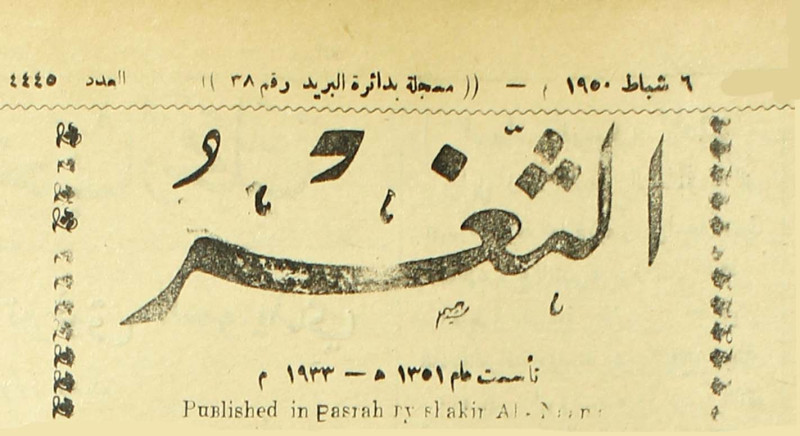 ٦ شباط ١٩٥٠ م — (( مسجلة بدائرة البريد رقم ٣٨ )) العدد ٤٤٤٥
الثغر
تأسست عام ١٣٥١ ه — ١٩٣٣ م
Published in Basrah by shakir Al-